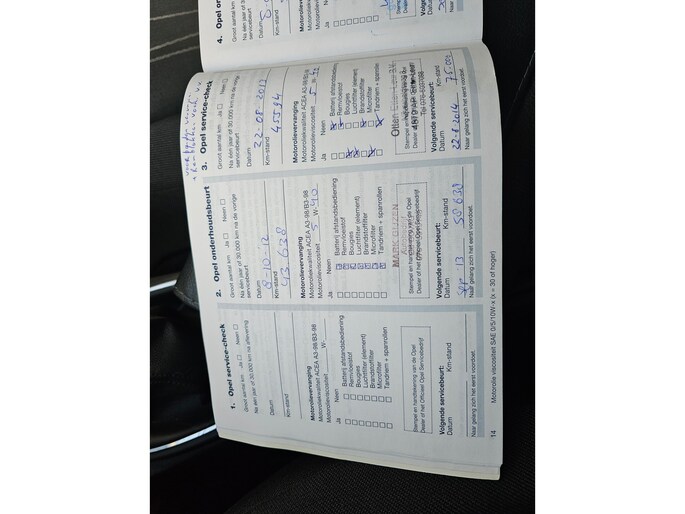 1. Opel service-check
Groot aantal km Ja Neen
Na één jaar of 30.000 km na aflevering
Datum
Km-stand
Motorolieverversing
Motoroliekwaliteit ACEA A3-98/B3-98
Motorolieviscositeit W-
Ja Neen
Batterij afstandsbediening
Remvloeistof
Bougies
Luchtfilter (element)
Brandstoffilter
Microfilter
Tandriem + spanrollen
Stempel en handtekening van de Opel
Dealer of het Officieel Opel Servicebedrijf
Volgende servicebeurt:
Datum Km-stand
Naar gelang zich het eerst voordoet.
14 Motorolie viscositeit SAE 0/5/10W-x (x = 30 of hoger)
2. Opel onderhoudsbeurt
Groot aantal km Ja Neen
Na één jaar of 30.000 km na de vorige
servicebeurt
Datum
8-10-12
Km-stand
43.638
Motorolieverversing
Motoroliekwaliteit ACEA A3-98/B3-98
Motorolieviscositeit 5 W-40
Ja Neen
Batterij afstandsbediening
Remvloeistof
Bougies
Luchtfilter (element)
Brandstoffilter
Microfilter
Tandriem + spanrollen
Stempel en handtekening van de Opel
Dealer of het Officieel Opel Servicebedrijf
Volgende servicebeurt:
Datum Km-stand
Sep 13
Naar gelang zich het eerst voordoet.
3. Opel service-check
Groot aantal km Ja Neen
Na één jaar of 30.000 km na de vorige
servicebeurt
Datum
22-08-2013
Km-stand
45594
Motorolieverversing
Motoroliekwaliteit ACEA A3-98/B3-98
Motorolieviscositeit 5 W-40
Ja Neen
Batterij afstandsbediening
Remvloeistof
Bougies
Luchtfilter (element)
Brandstoffilter
Microfilter
Tandriem + spanrollen
Volgende servicebeurt:
Datum Km-stand
22-8-2014 75.000
Naar gelang zich het eerst voordoet.
4. Opel
Groot aantal km
Na één jaar of 30
servicebeurt
Datum
Km-stand
Motorolieverv
Motoroliekwalit
Motorolieviscos
Ja
Volgende
Datum
Naar